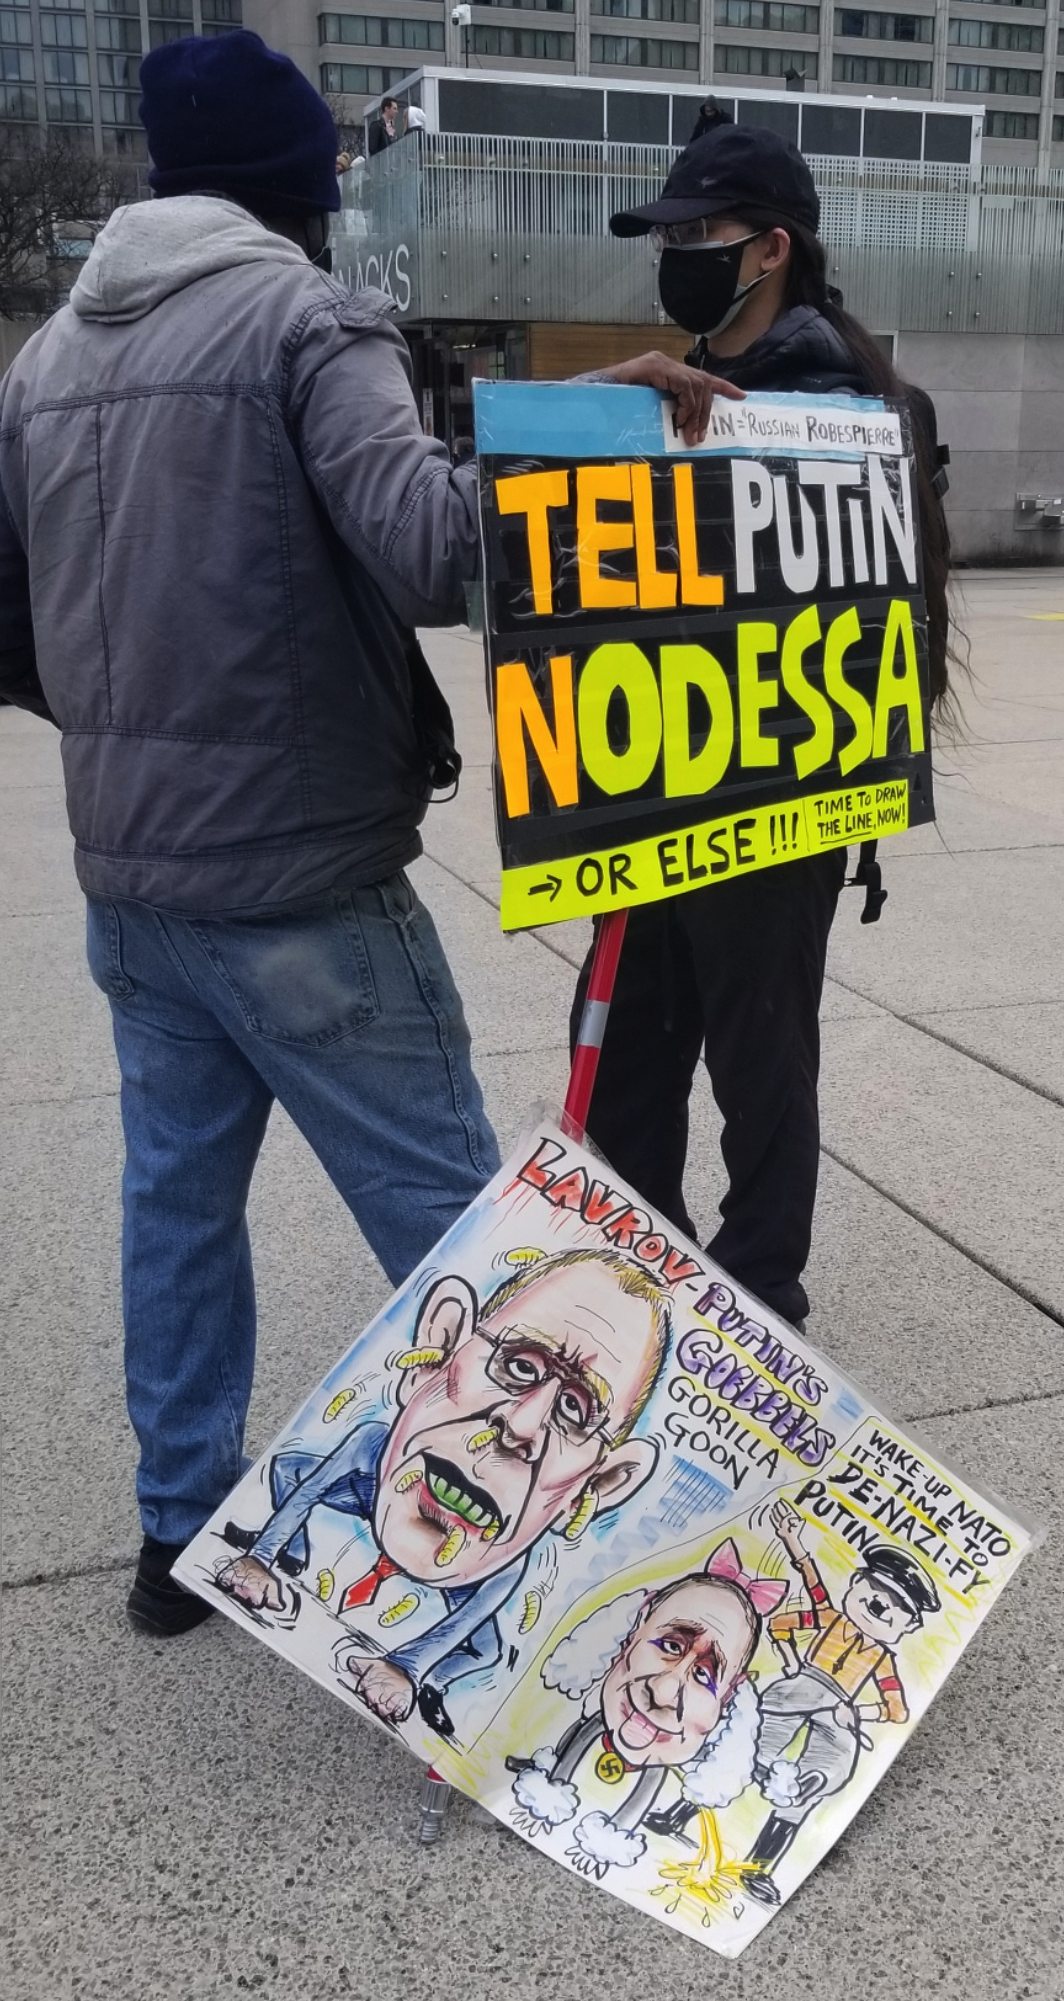 NACKS
="RUSSIAN ROBESPIERRE"
TELL PUTIN
NODESSA
→ OR ELSE!!!
TIME TO DRAW
THE LINE, NOW!
LAVROV-PUTIN'S
GOBBBELS
GORILLA
GOON
WAKE-UP NATO
IT'S TIME TO
DE-NAZI-FY
PUTIN